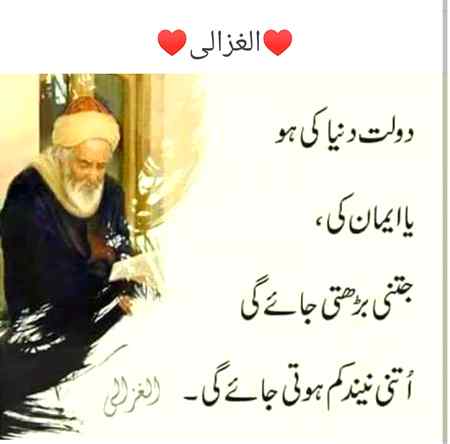 ❤️الغزالی❤️
دولت دنیا کی ہو
یا ایمان کی،
جتنی بڑھتی جائے گی
اُتنی نیند کم ہوتی جائے گی۔ الغزالی